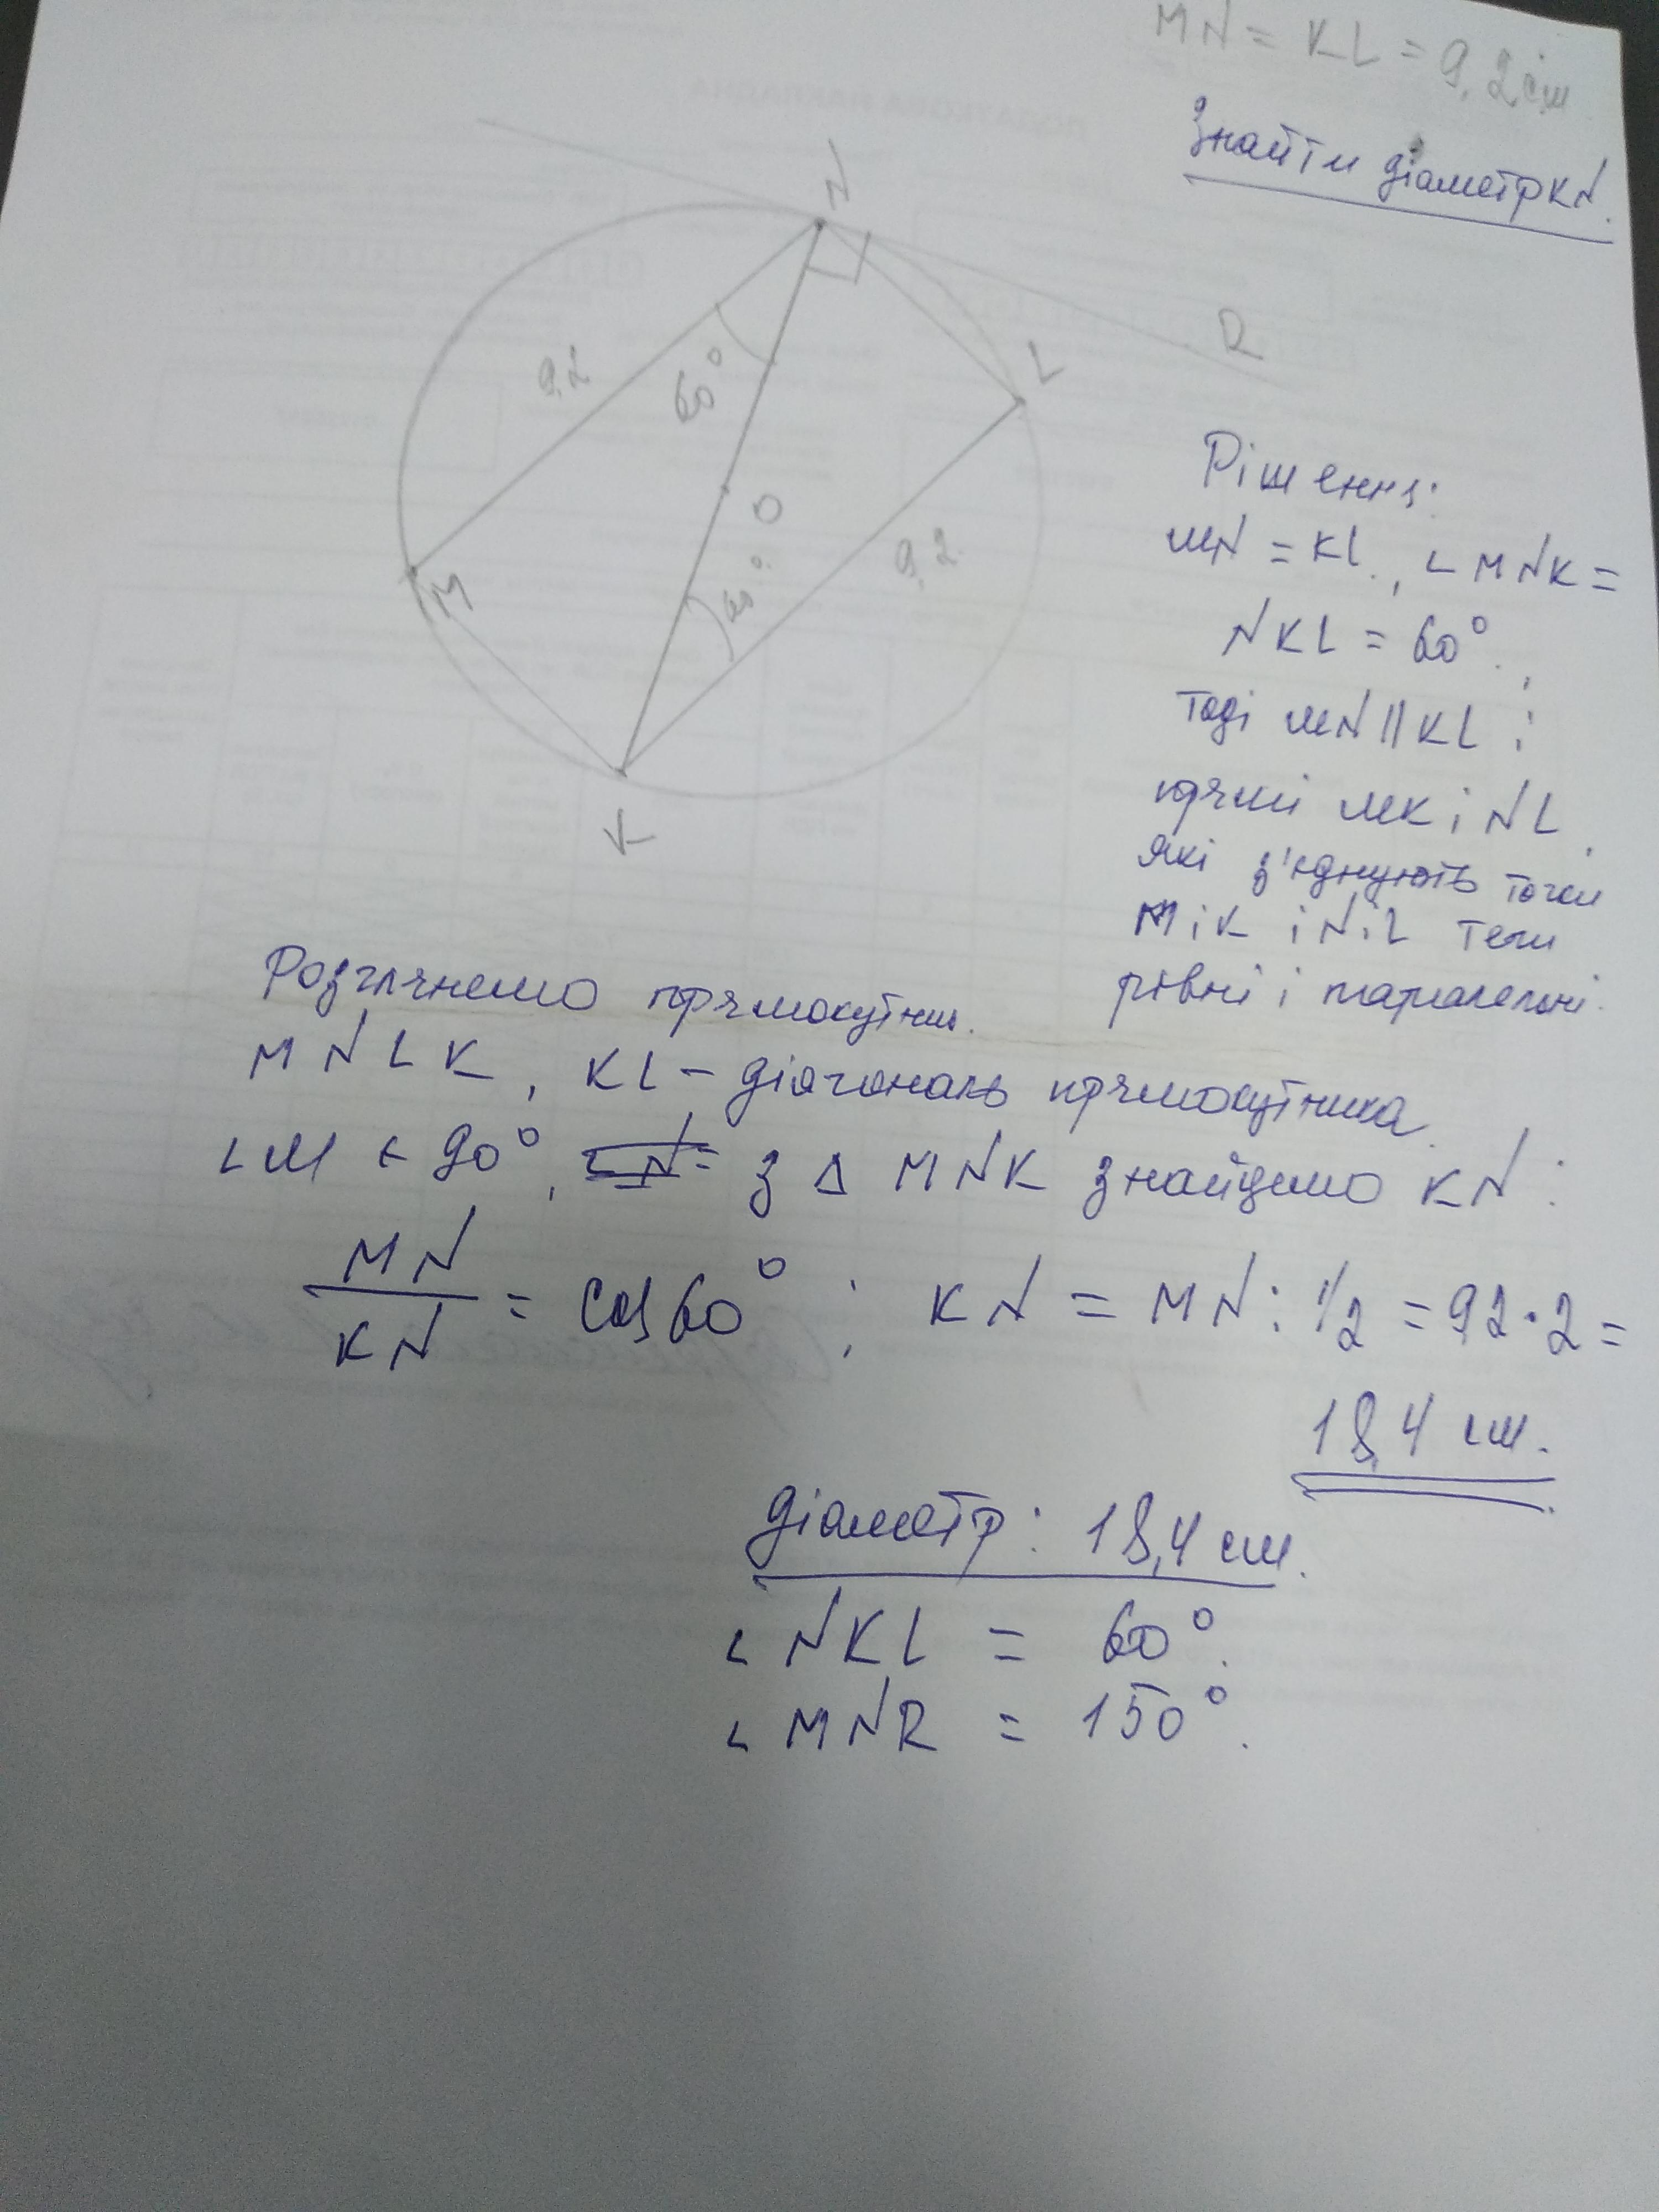 MN = KL = 9,2 см
Знайти діаметр KN.
N
R
L
9,2
60°
O
9,2
60°
M
K
Рішення:
MN = KL, ∟MNK =
NKL = 60°;
тоді MN || KL і
прямі MK і NL
які з'єднують точки
M і K і N і L теж
рівні і паралельні.
Розглянемо прямокутник
MNLK, KL - діагональ прямокутника.
∟M = 90°, з Δ MNK знайдемо KN:
MN
KN
= cos 60° ; KN = MN : 1/2 = 92 · 2 =
18,4 см.
Діаметр: 18,4 см.
∟NKL = 60°.
∟MNR = 150°.